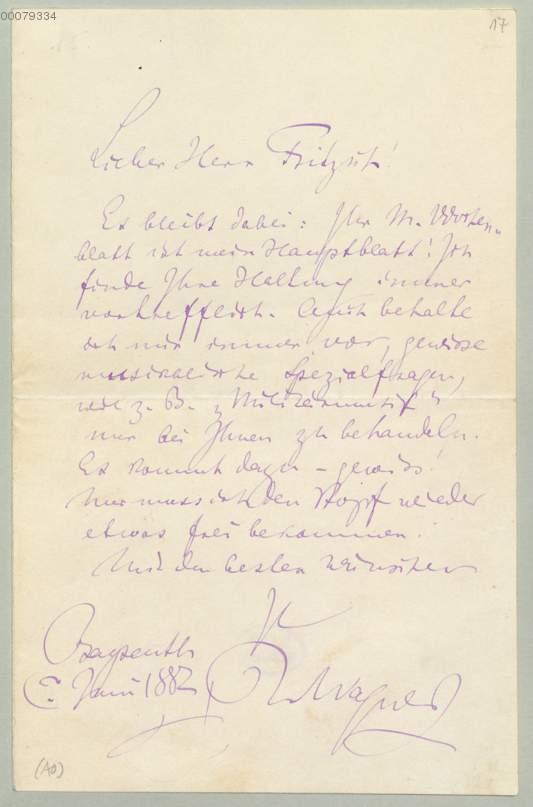 00079334
17
Lieber Herr Fritzsch!
Es bleibt dabei: Ihr M. Wochen-
blatt ist mein Hauptblatt! Ich
finde Ihre Haltung immer
vortrefflich. Auch behalte
ich mir immer vor, gewisse
musikalische Spezialfragen,
wie z. B. „Militärmusik"
nur bei Ihnen zu behandeln.
Es kommt dazu – gewiss!
Nur muss ich den Kopf wieder
etwas frei bekommen!
Mit den besten Wünschen
Ihr
Bayreuth
Juni 1882
RichWagner
(AO)